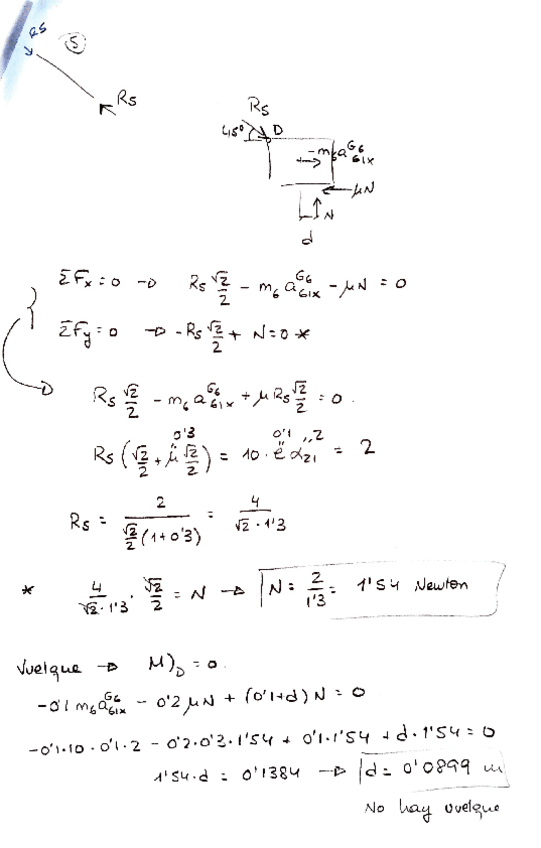 R5
⑤
R5
R5
45°
D
-m₆a^{G6}_{61x}
μN
N
d
ΣFx=0 → R5 √2/2 - m₆ a^{G6}_{61x} - μN = 0
ΣFy=0 → -R5 √2/2 + N=0 *
R5 √2/2 - m₆ a^{G6}_{61x} + μ R5 √2/2 = 0.
0'3 0'1 2
R5 (√2/2 + μ √2/2) = 10. e α21 = 2
R5 = 2 / (√2/2 (1+0'3)) = 4 / (√2 · 1'3)
* 4/(√2·1'3) · √2/2 = N → N = 2/1'3 = 1'54 Newton
Vuelque → M)_D = 0.
-0'1 m₆a^{G6}_{61x} - 0'2 μN + (0'1+d) N = 0
-0'1·10·0'1·2 - 0'2·0'3·1'54 + 0'1·1'54 + d·1'54 = 0
1'54·d = 0'1384 → d = 0'0899 m
No hay vuelque